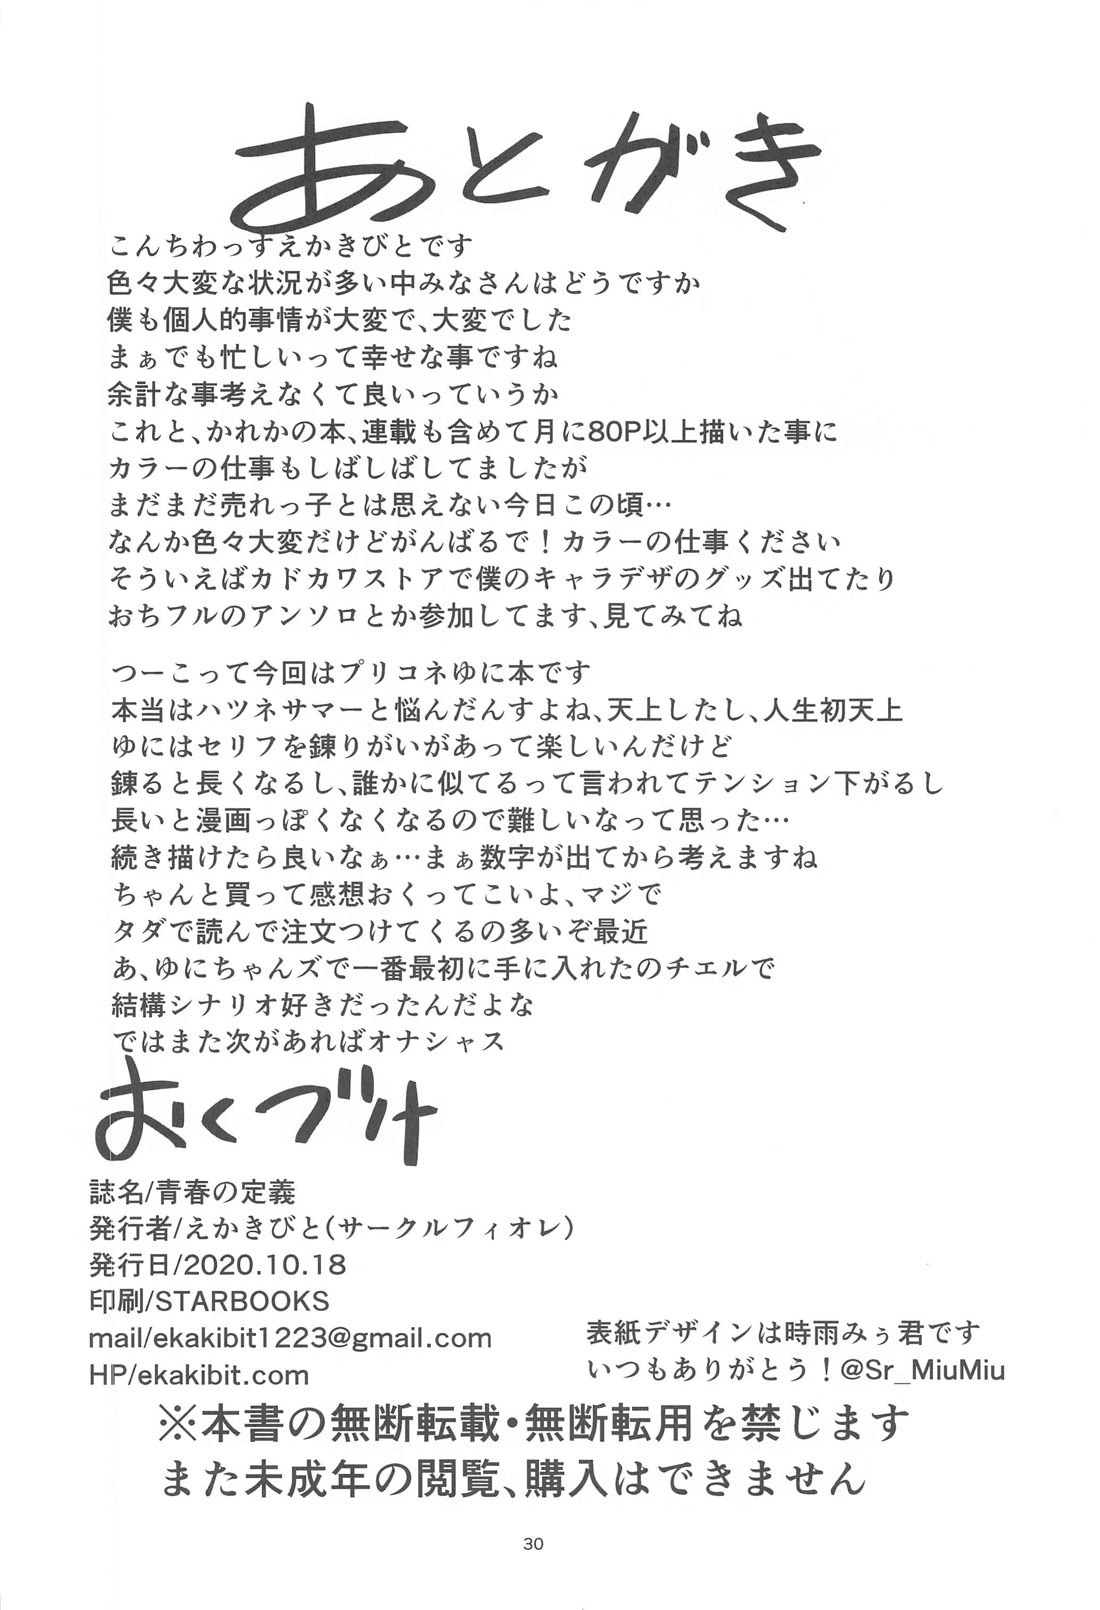 あとがき
こんちわっすえかきびとです
色々大変な状況が多い中みなさんはどうですか
僕も個人的事情が大変で、大変でした
まぁでも忙しいって幸せな事ですね
余計な事考えなくて良いっていうか
これと、かれかの本、連載も含めて月に80P以上描いた事に
カラーの仕事もしばしばしてましたが
まだまだ売れっ子とは思えない今日この頃…
なんか色々大変だけどがんばるで！カラーの仕事ください
そういえばカドカワストアで僕のキャラデザのグッズ出てたり
おちフルのアンソロとか参加してます、見てみてね
つーこって今回はプリコネゆに本です
本当はハツネサマーと悩んだんすよね、天上したし、人生初天上
ゆにはセリフを錬りがいがあって楽しいんだけど
錬ると長くなるし、誰かに似てるって言われてテンション下がるし
長いと漫画っぽくなくなるので難しいなって思った…
続き描けたら良いなぁ…まぁ数字が出てから考えますね
ちゃんと買って感想おくってこいよ、マジで
タダで読んで注文つけてくるの多いぞ最近
あ、ゆにちゃんズで一番最初に手に入れたのチエルで
結構シナリオ好きだったんだよな
ではまた次があればオナシャス
おくづけ
誌名/青春の定義
発行者/えかきびと(サークルフィオレ)
発行日/2020.10.18
印刷/STARBOOKS
mail/ekakibit1223@gmail.com
HP/ekakibit.com
表紙デザインは時雨みぅ君です
いつもありがとう！@Sr_MiuMiu
※本書の無断転載・無断転用を禁じます
また未成年の閲覧、購入はできません
30